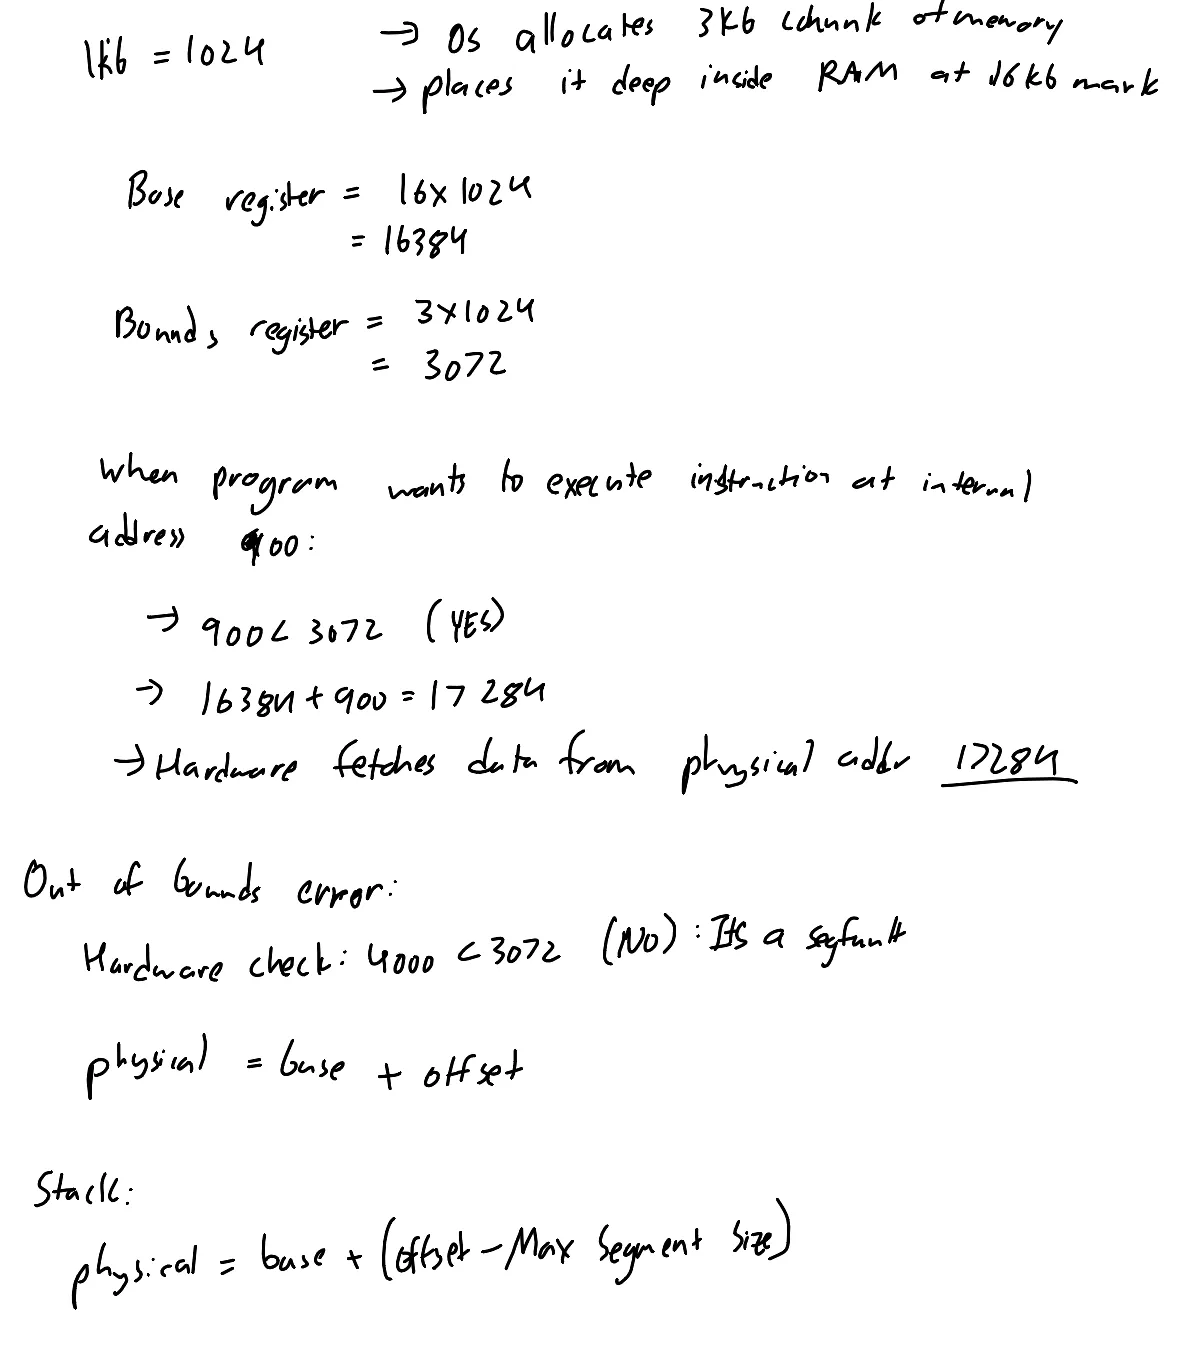 1kb = 1024
→ Os allocates 3kb chunk of memory
→ places it deep inside RAM at 16kb mark
Base register = 16x1024
= 16384
Bounds register = 3x1024
= 3072
when program wants to execute instruction at internal
address 900:
→ 900 < 3072 (YES)
→ 16384 + 900 = 17284
→ Hardware fetches data from physical addr 17284
Out of bounds error:
Hardware check: 4000 < 3072 (NO) : Its a segfault
physical = base + offset
Stack:
physical = base + (offset - Max Segment Size)